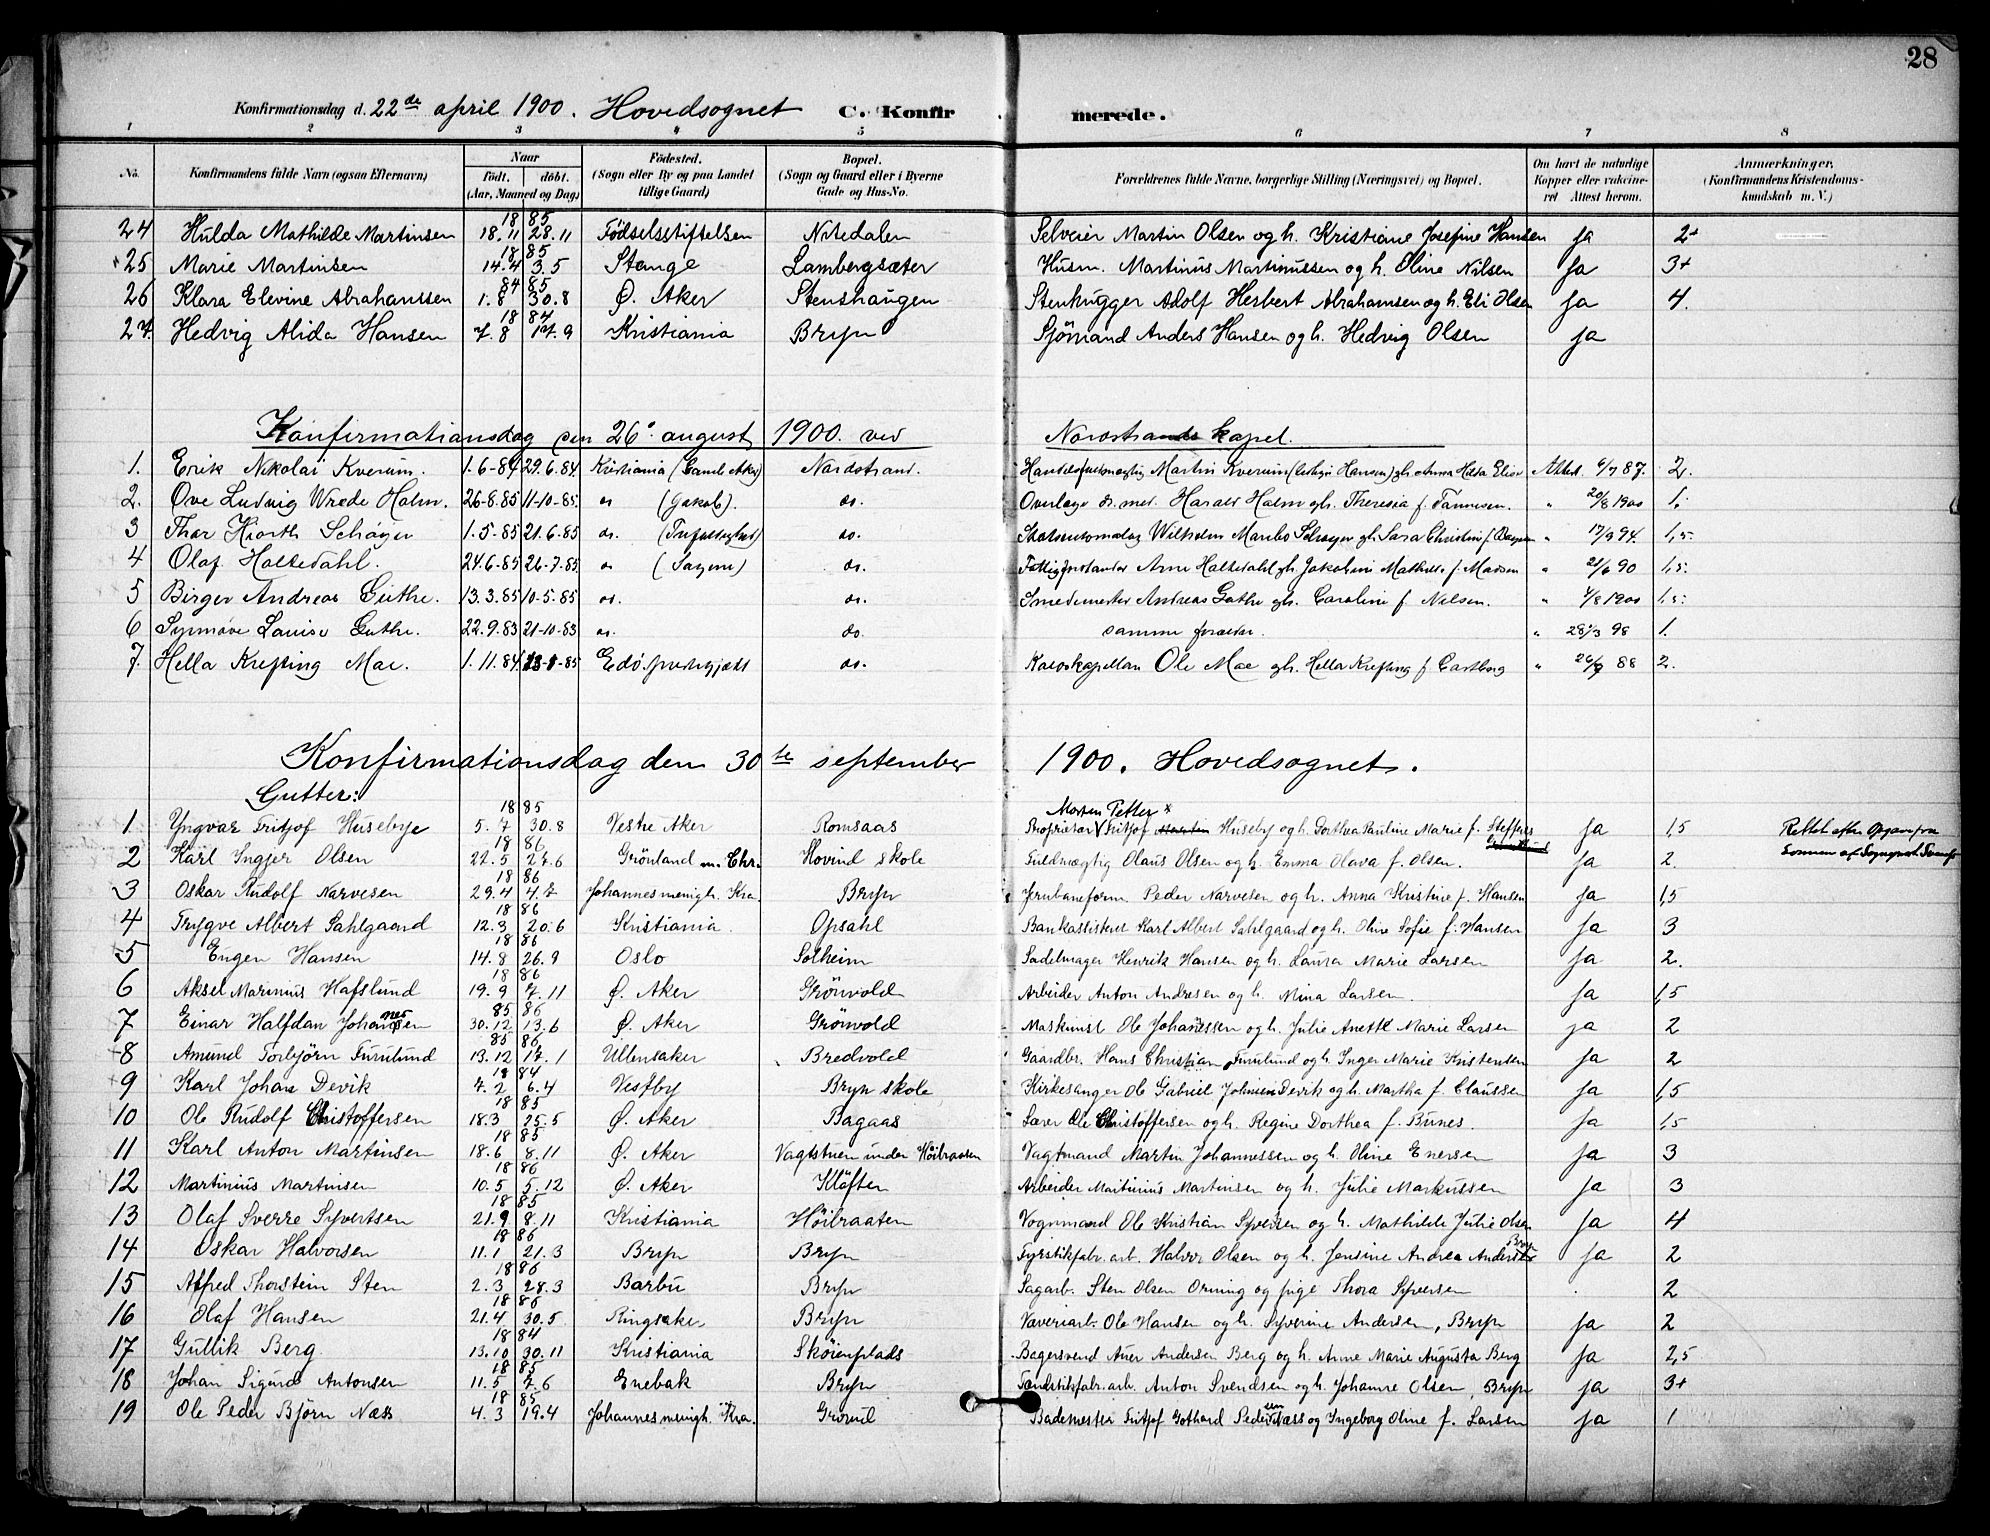 28
Konfirmationsdag d. 22de april 1900. Hovedsognet C. Konfirmerede.
1 2 3 4 5 6 7 8
No. Konfirmandens fulde Navn (ogsaa Efternavn) Naar Født. døbt. (Aar, Maaned og Dag) Fødested. (Sogn eller By og paa Landet tillige Gaard) Bopæl. (Sogn og Gaard eller i Byerne Gade og Hus-No. Forældrenes fulde Navne, borgerlige Stilling (Næringsvei) og Bopæl. Om havt de naturlige Kopper eller vaccineret Attest herom. Anmærkninger. (Konfirmandens Kristendomskundskab m. V.)
24 Hulda Mathilde Martinsen 1885 18.11 28.11 Fødselsstiftelsen Nitedalen Selveier Martin Olsen og h. Kristiane Josefine Hansen Ja 2+
25 Marie Martinsen 1885 14.4 3.5 Stange Lambergsæter Husm. Martinus Martinussen og h. Oline Nilsen Ja 3+
26 Klara Elevine Abrahamsen 84 85 1.8 30.8 Ø. Aker Stenshaugen Stenhugger Adolf Herbert Abrahamsen og h. Eli Olsen Ja 4.
27. Hedvig Alida Hansen 1884 7.8 17.9 Kristiania Bryn Sjömand Anders Hansen og h. Hedvig Olsen Ja
Konfirmationsdag den 26. august 1900. ved Nordstrands kapel.
1. Erik Nikolai Kverum. 1.6-84 29.6.84 Kristiania (Gamle Aker) Nordstrand. Martin Kverum gh. Anna Attest 6/7 87. 2.
2. Ove Ludvig Wrede Holm. 26-8.85 11-10-85. do (Jakob). do. Overlæge dr. med. Harald Holm gh. Theresia f. " 20/8 1900 1.
3 Thor Hiorth Schøyen 1.5-85 21.6.85 do. do. Wilhelm Maribo Schøyen gh. Sara Christine f. " 17/9 94. 1,5.
4 Olaf Holtedahl. 24.6-85 26-7.85 do (Sagene) do. Fattigforstander Arne Holtedahl gh. Jakobine Mathilde f. Madsen " 21/6 90 1,5.
5 Birger Andreas Guthe. 13.3.85 10-5.85 do. do. Smedemester Andreas Guthe gh. Caroline f. Nilsen. " 4/8 1900 1,5.
6 Synnöve Louise Guthe. 22.9.83 21-10.83 do. do. samme forældre. " 98 1.
7. Hella Krefting Moe. 1.11.84 Edø præstegjæld do. Ole Moe gh. Hella Krefting f. " 88 2.
Konfirmationsdag den 30te september 1900. Hovedsognet.
Gutter:
Morten Petter x
1 Yngvar Fritjof Husebye 1885 5.7 30.8 Vestre Aker Romsaas Proprietær V Fritjof Huseby og h. Dorthea Pauline Marie f. Steffens Ja 1,5 Rettet efter Opgave fra
2 Karl Ingjer Olsen 1886 22.5 27.6 Grönland m. Chr. Hovind skole Fuldmægtig Olaus Olsen og h. Emma Olava f. Olsen. Ja 2.
3 Oskar Rudolf Narvesen 1886 29.4 4.7 Johannes menigh. Kra. Bryn Jernbaneform. Peder Narvesen og h. Anna Kristine f. Hansen Ja 1,5
4 Trygve Albert Sahlgaard 1886 12.3 20.6 Kristiania. Opsahl Bankassistent Karl Albert Sahlgaard og h. Oline Sofie f. Hansen Ja 3
5 Eugen Hansen 1886 14.8 26.9 Oslo Solheim Sadelmager Henrik Hansen og h. Laura Marie Larsen Ja 2.
6 Aksel Marinius Hafslund 1886 19.9 7.11 Ø. Aker Grönvold Arbeider Anton Andresen og h. Mina Larsen. Ja 1,5
7 Einar Halfdan Johannessen 85 86 30.12 13.6 Ø. Aker Grönvold Maskinist Ole Johannessen og h. Julie Anette Marie Larsen ja 2
8 Amund Torbjörn Furulund 85 86 13.12 17.1 Ullensaker Bredvold Gaardbr. Hans Christian Furulund og h. Inger Marie Kristensen Ja 2
9 Karl Johan Devik 1884 7.2 6.4 Vestby Bryn skole Kirkesanger Ole Gabriel Johnsen Devik og h. Martha f. Claussen Ja 1,5
10 Ole Rudolf Christoffersen 1885 18.3 25.5 Ø. Aker Bagaas Lærer Ole Christoffersen og h. Regine Dorthea f. Bunes. Ja 1,5
11 Karl Anton Martinsen 1885 18.6 8.11 Ø. Aker Vagtstuen under Höibraaten Vagtmand Martin Johannessen og h. Oline Enersen Ja 3
12 Martinius Martinsen 1886 10.5 5.12 Ø. Aker Klöften Arbeider Martinius Martinsen og h. Julie Markussen Ja 3
13 Olaf Sverre Syvertsen 1885 21.9 8.11 Kristiania Höibraaten Vognmand Ole Kristian Syversen og h. Mathilde Julie Olsen Ja 4
14 Oskar Halvorsen 1886 11.1 21.3 Bryn Bryn Fyrstikfabr. arb. Halvor Olsen og h. Jensine Andrea Andersen Bryn Ja 2
15 Alfred Thorstein Sten 1886 2.3 28.3 Barbu Bryn Sagarb. Sten Olsen Orning og pige Thora Syversen 2
16 Olaf Hansen 1886 21.4 30.5 Ringsaker Bryn Væveriarb. Ole Hansen og h. Syverine Andersen, Bryn Ja 2
17 Gullik Berg. 1884 13.10 30.11 Kristiania Skörenplads Bagersvend Auer Andersen Berg og h. Anne Marie Augusta Berg Ja 2,5
18 Johan Sigurd Antonsen 1885 11.5 7.6 Enebak Bryn Tændstikfabr. arb. Anton Svendsen og h. Johanne Olsen, Bryn ja 3+
19 Ole Peder Björn Næss 1885 4.3 19.4 Johannes menigh. Kra. Grorud Bademester Fritjof Gothard Pedersen Næss og Ingeborg Oline f. Larsen Ja 1